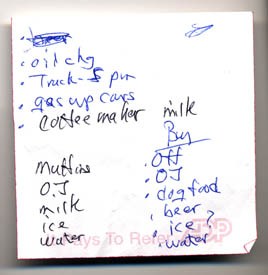 · oil chg
· Truck-
· gas up cars
· coffee maker
milk
Buy
muffins
OJ
milk
ice
water
· Off
· OJ
· dog food
· beer
· ice?
· water
ays To Rele
ADP